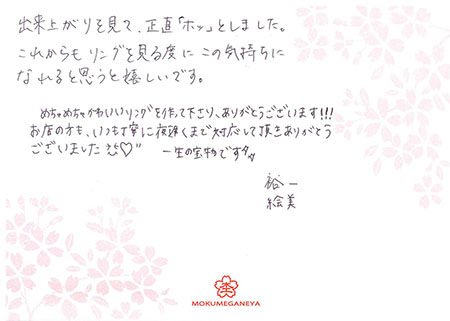 出来上がりを見て、正直「ホッ」としました。
これからも リングを見る度に この気持ちに
なれると思うと嬉しいです。
めちゃめちゃかわいいリングを作って下さり、ありがとうございます!!!
お店の方も、いつも丁寧に夜遅くまで対応して頂きありがとう
ございました♡" 一生の宝物です
裕一
絵美
MOKUMEGANEYA